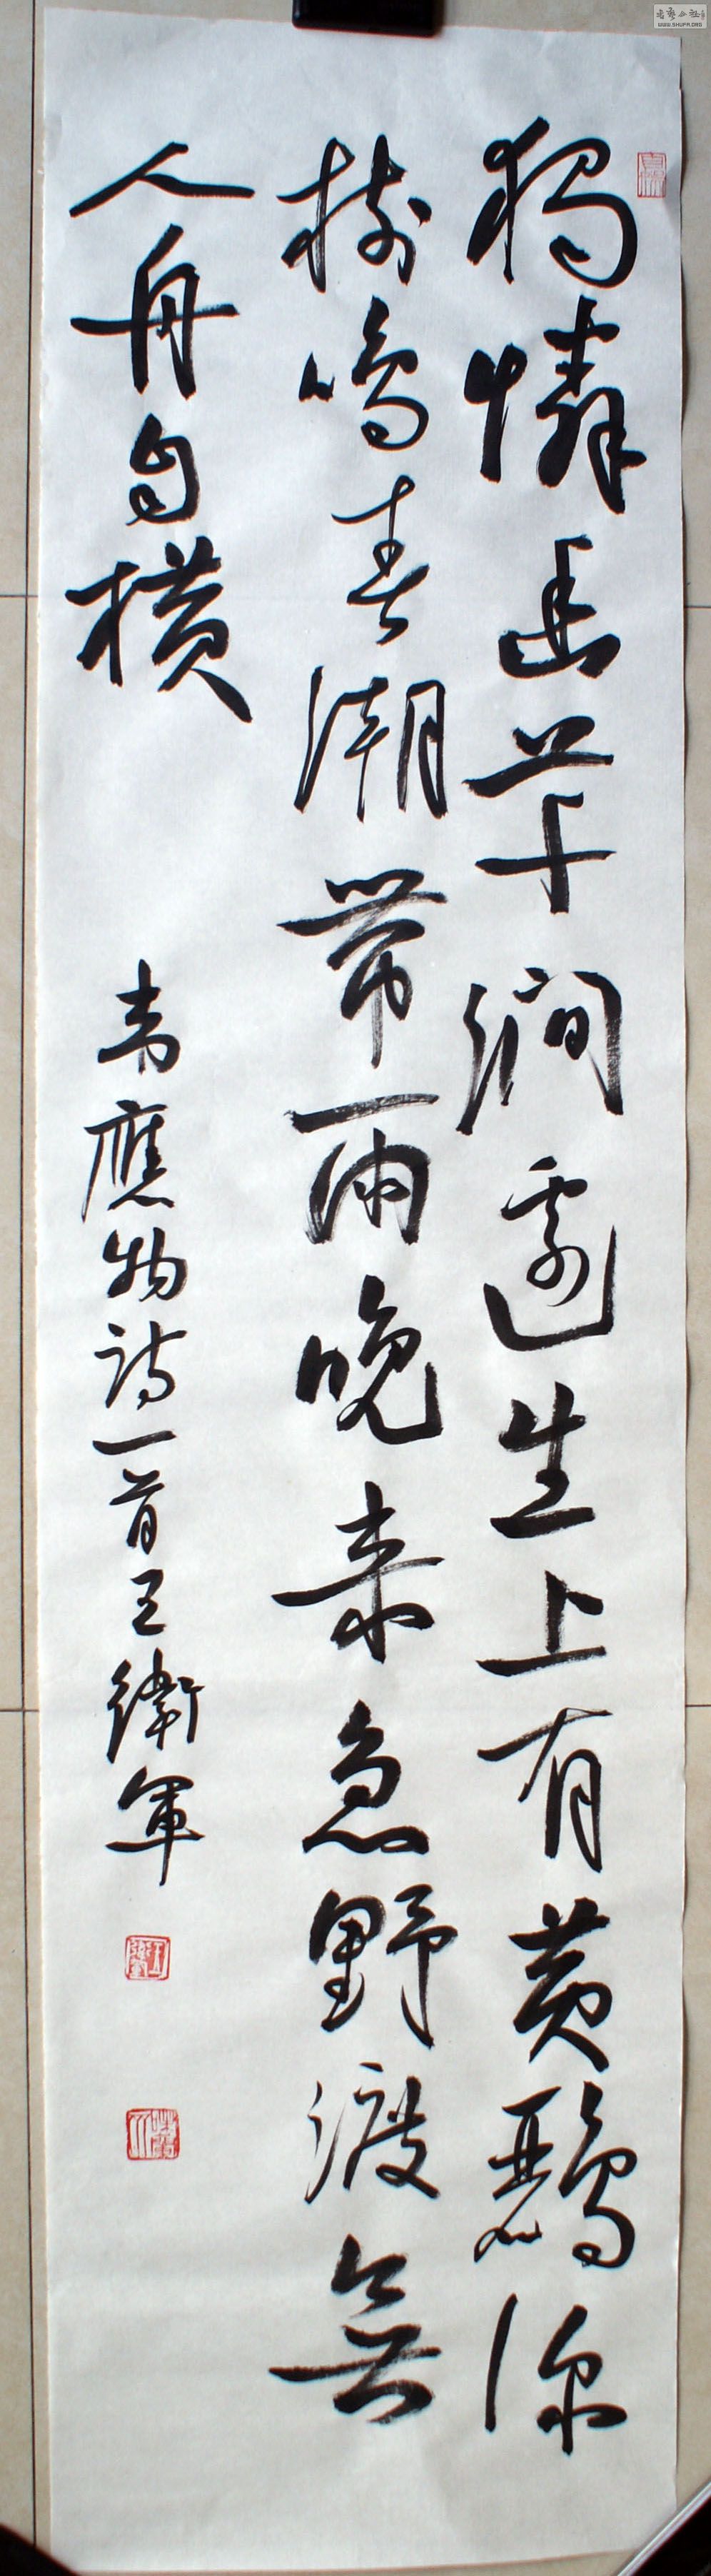 獨憐幽草澗邊生上有黃鸝深
樹鳴春潮帶雨晚來急野渡無
人舟自橫
韋應物詩一首王衛軍
WWW.SHUFA.ORG